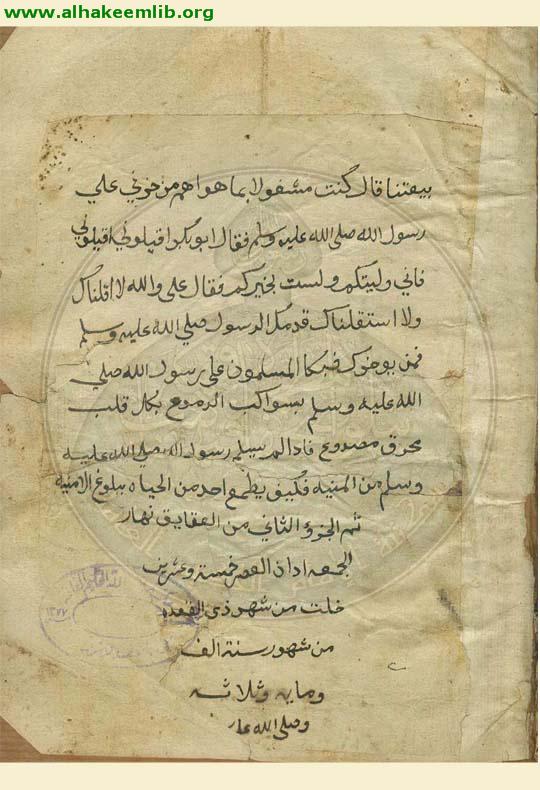 www.alhakeemlib.org
بيعتنا قال كنت مشغولا بما هو اهم من حزني علي
رسول الله صلي الله عليه وسلم فقال ابو بكر اقيلوني اقيلوني
فاني وليتكم ولست بخيركم فقال علي والله لا اقلناك
ولا استقلناك قدمك الرسول صلي الله عليه وسلم
فمن يوخرك فبكا المسلمون علي رسول الله صلي
الله عليه وسلم بسواكب الدموع بكل قلب
محرق مصدوع فاذا لم يسلم رسول الله صلي الله عليه
وسلم من المنيه فكيف يطمع احد من الحياه ببلوغ الامنيه
تم الجزؤ الثاني من العقايق نهار
الجمعه اذان العصر خمسة وعشرين
خلت من شهر ذي القعده
من شهور سنة الف
ومايه وثلاثه
وصلي الله علي